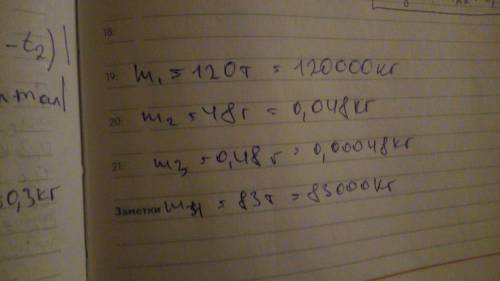 - t₂)
18:
19: m₁ = 120т = 120000кг
20: m₂ = 48г = 0,048кг
21: m₃ = 0,48г = 0,00048кг
=0,3кг
Заметки m₄ = 83т = 83000кг